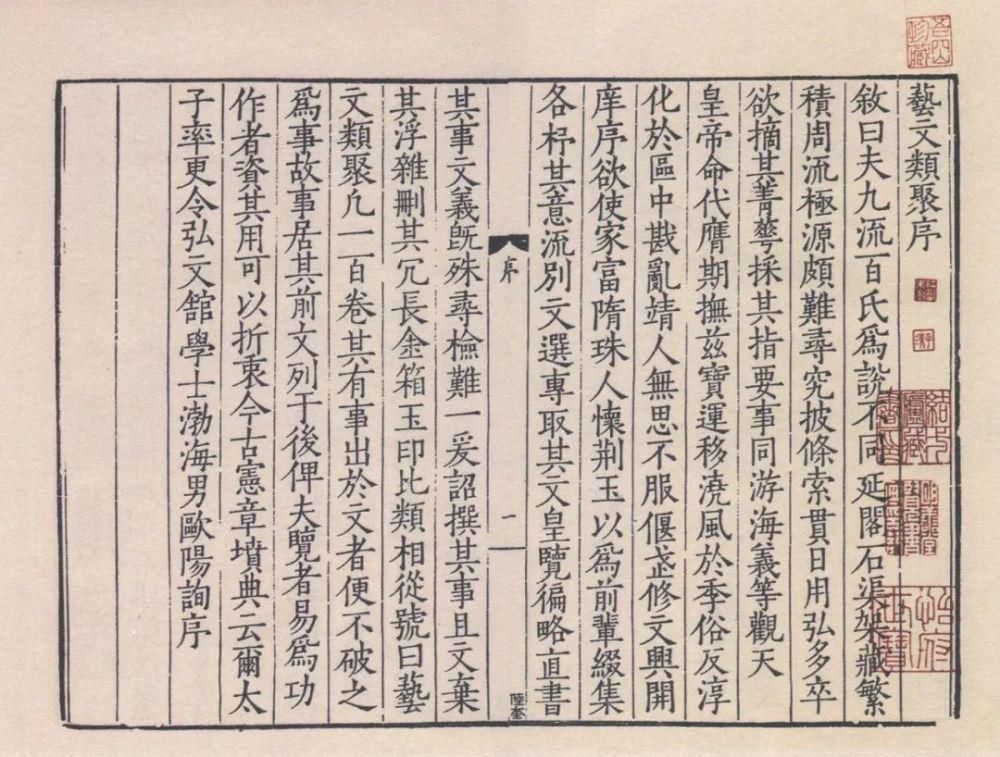 藝文類聚序
敘曰夫九流百氏爲說不同延閣石渠架藏繁
積周流極源頗難尋究披條索貫日用弘多卒
欲摘其菁華採其指要事同游海義等觀天
皇帝命代膺期撫茲寶運移澆風於季俗反淳
化於區中戡亂靖人無思不服偃武修文興開
庠序欲使家富隋珠人懷荆玉以爲前輩綴集
各杼其意流別文選專取其文皇覽徧略直書
序
一
陸奎
其事文義旣殊尋檢難一爰詔撰其事且文棄
其浮雜刪其冗長金箱玉印比類相從號曰藝
文類聚凡一百卷其有事出於文者便不破之
爲事故事居其前文列于後俾夫覽者易爲功
作者資其用可以折衷今古憲章墳典云爾太
子率更令弘文館學士渤海男歐陽詢序